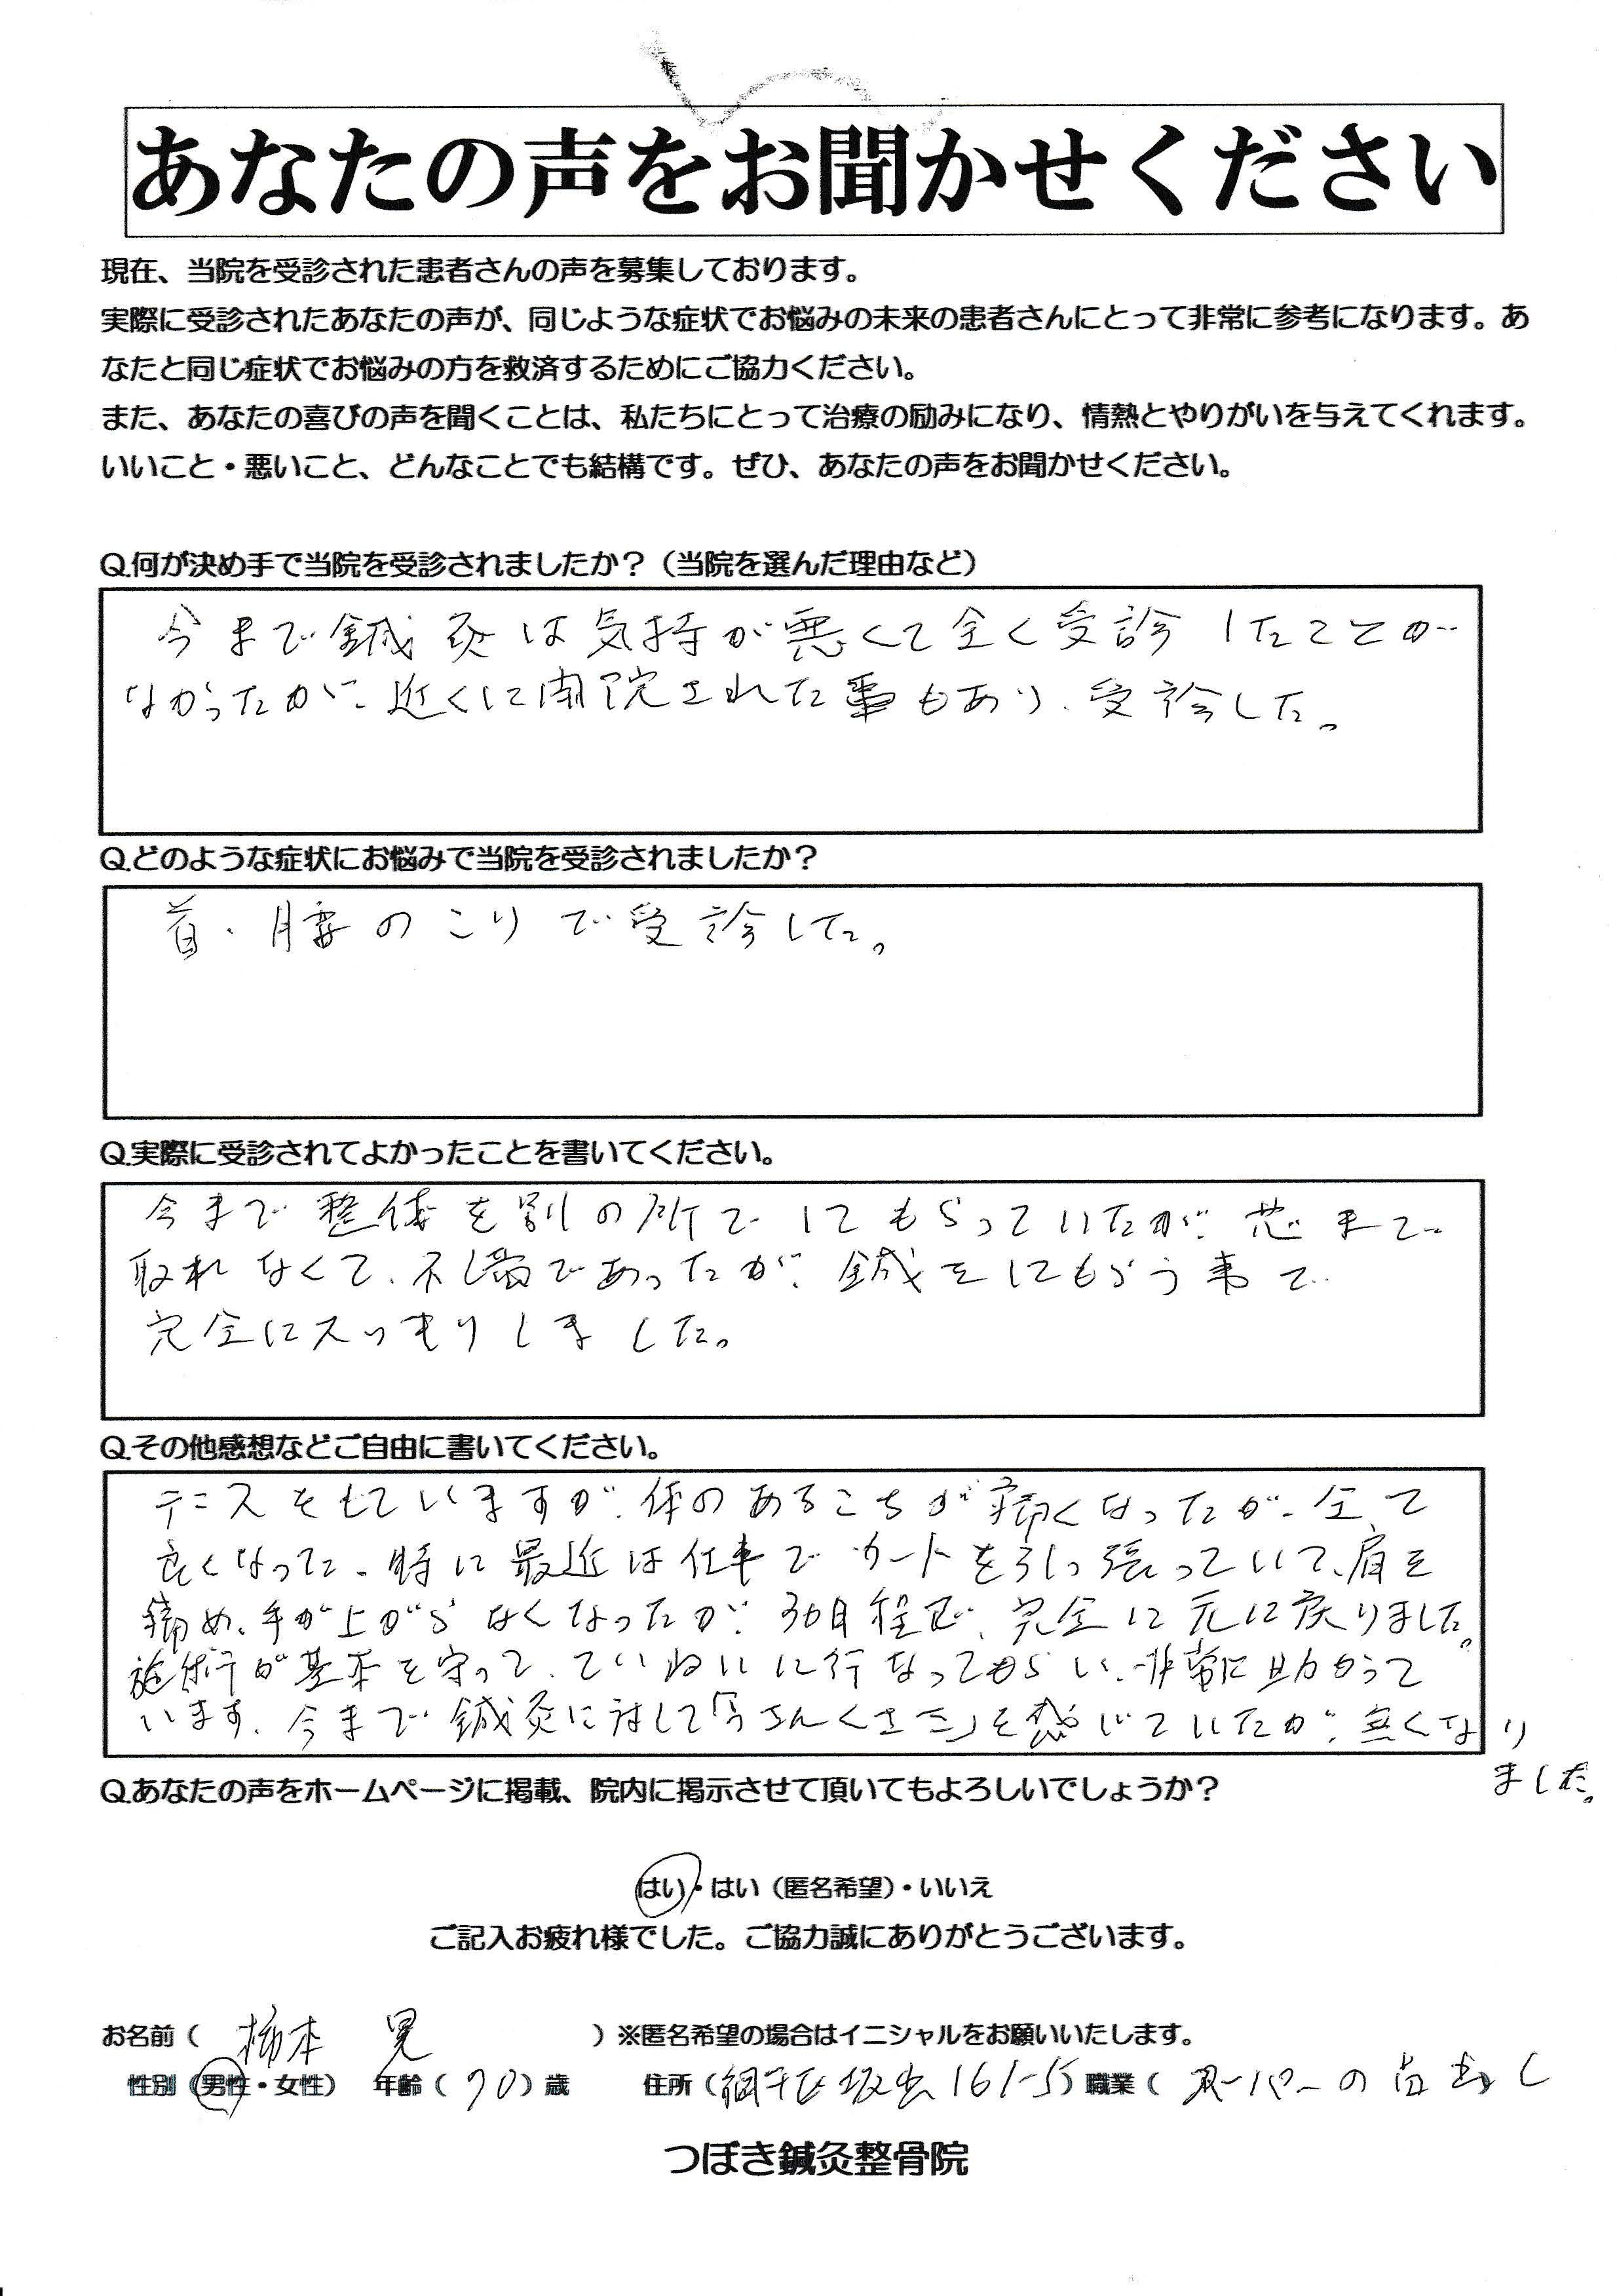 あなたの声をお聞かせください
現在、当院を受診された患者さんの声を募集しております。
実際に受診されたあなたの声が、同じような症状でお悩みの未来の患者さんにとって非常に参考になります。あ
なたと同じ症状でお悩みの方を救済するためにご協力ください。
また、あなたの喜びの声を聞くことは、私たちにとって治療の励みになり、情熱とやりがいを与えてくれます。
いいこと・悪いこと、どんなことでも結構です。ぜひ、あなたの声をお聞かせください。
Q.何が決め手で当院を受診されましたか？（当院を選んだ理由など）
今まで鍼灸は気持が悪くて全く受診したことが
なかったが、近くに開院された事もあり、受診した。
Q.どのような症状にお悩みで当院を受診されましたか？
首・腰のこりで受診した。
Q.実際に受診されてよかったことを書いてください。
今まで整体を別の所でしてもらっていたが、芯まで
取れなくて、不満であったが、鍼をしてもらう事で
完全にスッキリしました。
Q.その他感想などご自由に書いてください。
テニスをしていますが、体のあちこちが痛くなったが、全て
良くなった。特に最近は仕事でカートを引っ張っていて、肩を
痛め、手が上がらなくなったが、3カ月程で、完全に元に戻りました。
施術が基本を守って、ていねいに行なってもらい、非常に助かって
います。今まで鍼灸に対して「うさんくささ」を感じていたが、無くなり
ました。
Q.あなたの声をホームページに掲載、院内に掲示させて頂いてもよろしいでしょうか？
はい・はい（匿名希望）・いいえ
ご記入お疲れ様でした。ご協力誠にありがとうございます。
お名前（ 柿本 晃 ）※匿名希望の場合はイニシャルをお願いいたします。
性別（男性・女性） 年齢（70）歳 住所（網干区坂出161-5）職業（スーパーの品出し
つぼき鍼灸整骨院